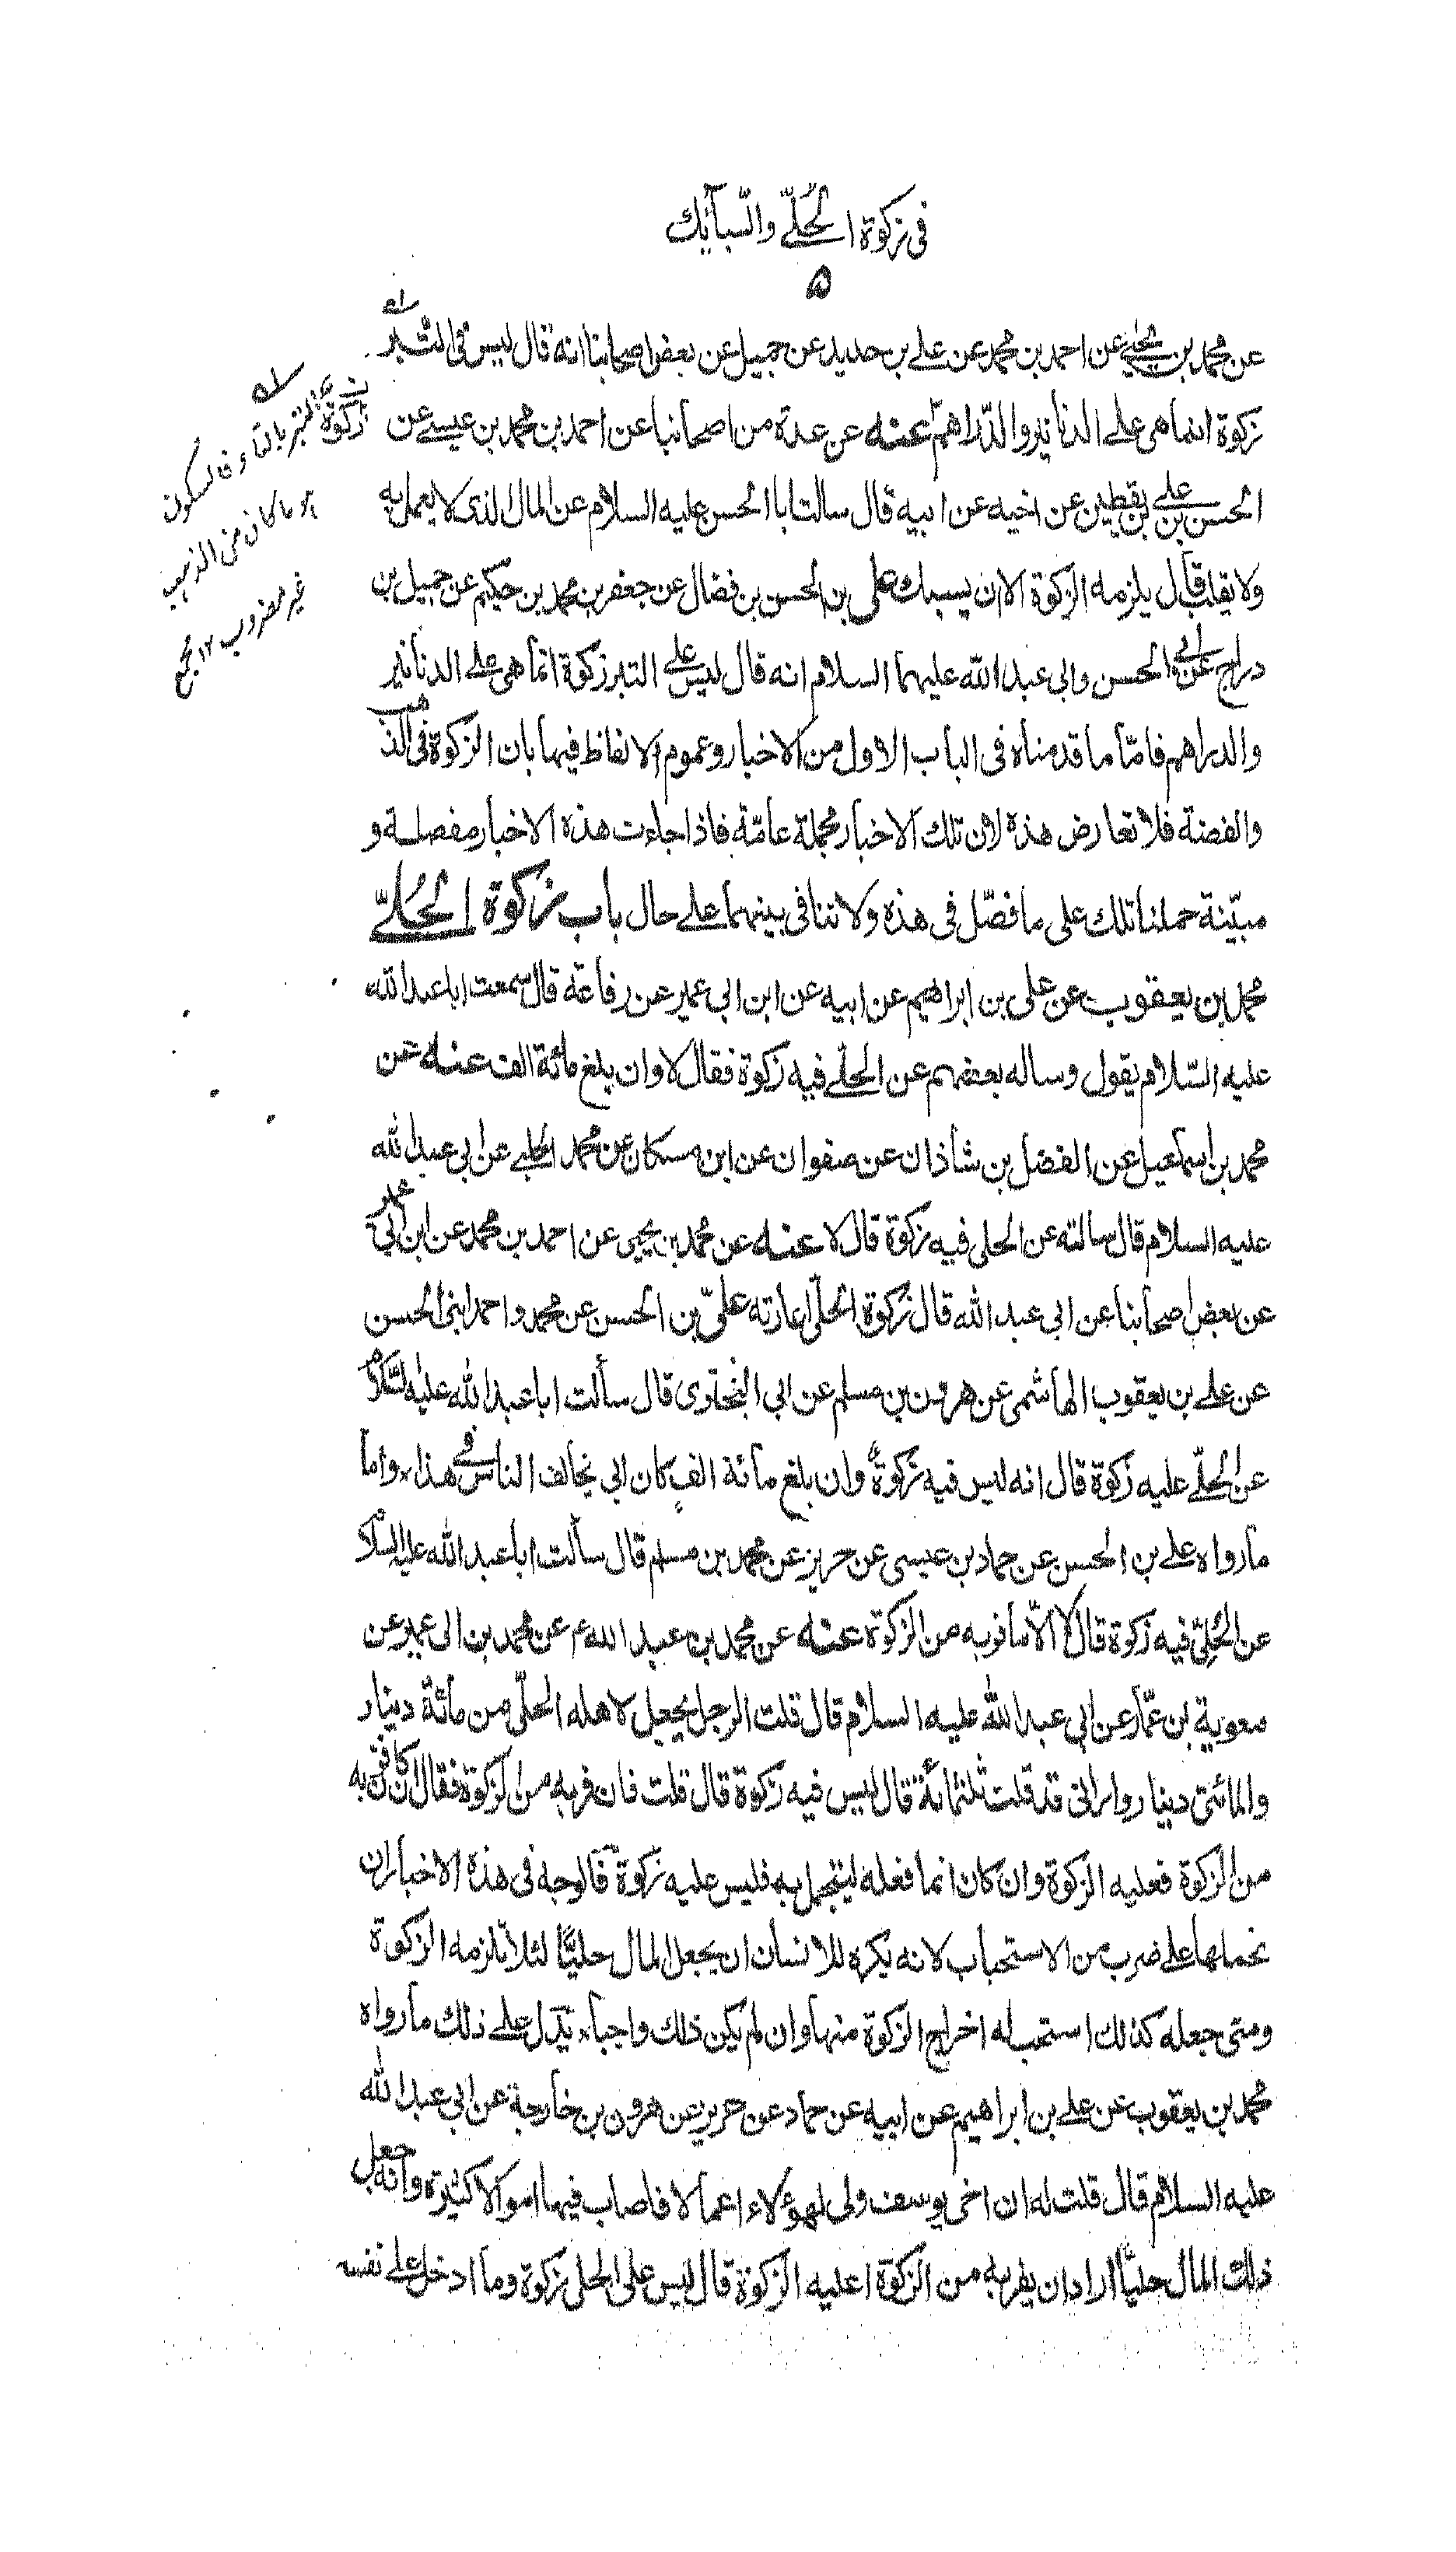 فى زكوة الحُلىّ والسّبائك
۵
عن محمد بن يحيى عن احمد بن محمد عن على بن حديد عن جميل عن بعض اصحابنا انه قال ليس فى التبر
زكوة انما هى على الدنانير والدّراهم عنه عن عدة من اصحابنا عن احمد بن محمد بن عيسى عن
الحسن بن على بن يقطين عن اخيه عن ابيه قال سالت ابا الحسن عليه السلام عن المال الذى لا يعمل به
ولا يقلب قال يلزمه الزكوة الا ان يسبك على بن الحسن بن فضال عن جعفر بن محمد بن حكيم عن جميل بن
دراج عن ابى الحسن وابى عبد الله عليهما السلام انه قال ليس على التبر زكوة انما هى على الدنانير
والدراهم فامّا ما قدمناه فى الباب الاول من الاخبار وعموم الالفاظ فيها بان الزكوة فى الذهب
والفضة فلا تعارض هذه لان تلك الاخبار مجملة عامّة فاذا جاءت هذه الاخبار مفصلة و
مبيّنة حملنا تلك على ما فصّل فى هذه ولا تنافى بينهما على حال باب زكوة الحُلىّ
محمد بن يعقوب عن على بن ابراهيم عن ابيه عن ابن ابى عمير عن رفاعة قال سمعت ابا عبد الله
عليه السّلام يقول وساله بعضهم عن الحلّى فيه زكوة فقال لا وان بلغ مائة الف عنه عن
محمد بن اسمعيل عن الفضل بن شاذان عن صفوان عن ابن مسكان عن محمد الحلبى عن ابى عبد الله
عليه السلام قال سالته عن الحلى فيه زكوة قال لا عنه عن محمد بن يحيى عن احمد بن محمد عن ابن ابى عمير
عن بعض اصحابنا عن ابى عبد الله قال زكوة الحلّى اعارته علىّ بن الحسن عن محمد واحمد ابنى الحسن
عن على بن يعقوب الهاشمى عن هرون بن مسلم عن ابى البخترى قال سألت ابا عبد الله عليه السّلام
عن الحلّى عليه زكوة قال انه ليس فيه زكوة وان بلغ مائة الف كان ابى يخالف الناس فى هذا واما
ما رواه على بن الحسن عن حماد بن عيسى عن حريز عن محمد بن مسلم قال سألت ابا عبد الله عليه السلام
عن الحُلىّ فيه زكوة قال لا الاّ ما فر به من الزكوة عنه عن محمد بن عبد الله عن محمد بن ابى عمير عن
معوية بن عمّار عن ابى عبد الله عليه السلام قال قلت الرجل يجعل لاهله الحلّى من مائة دينار
والمائتى دينار وارانى قد قلت ثلثمائة قال ليس فيه زكوة قال قلت فان فر به من الزكوة فقال ان كان فرّ به
من الزكوة فعليه الزكوة وان كان انما فعله ليتجمل به فليس عليه زكوة فالوجه فى هذه الاخبار ان
نحملها على ضرب من الاستحباب لانه يكره للانسان ان يجعل المال حليًّا لئلا تلزمه الزكوة
ومتى جعله كذلك استحب له اخراج الزكوة منها وان لم يكن ذلك واجبا يدل على ذلك ما رواه
محمد بن يعقوب عن على بن ابراهيم عن ابيه عن حماد عن حريز عن هرون بن خارجة عن ابى عبد الله
عليه السلام قال قلت له ان اخى يوسف ولى لهؤلاء اعمالا فاصاب فيها اموالا كثيرة وانه جعل
ذلك المال حليّا اراد ان يفر به من الزكوة اعليه الزكوة قال ليس على الحلى زكوة وما ادخل على نفسه
التبر بالتاء فالسكون
هو ما كان من الذهب
غير مضروب ۱۲ مجمع